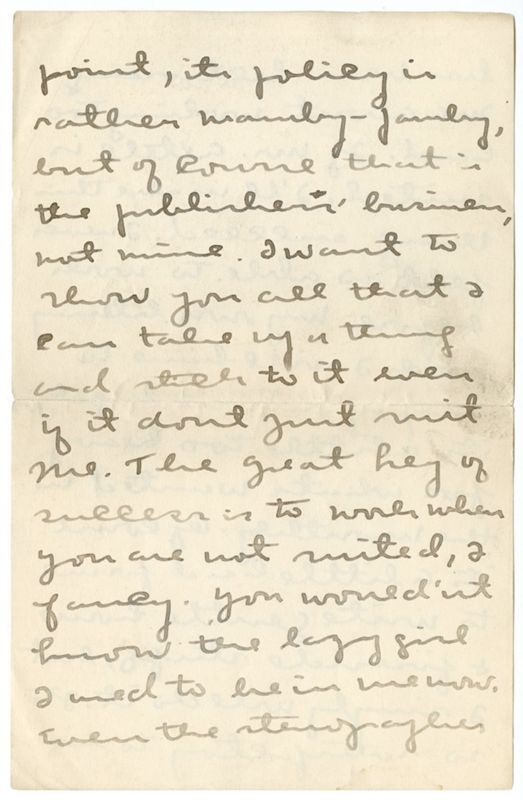 point, its policy is
rather namby-pamby,
but of course that is
the publishers' business,
not mine. I want to
show you all that I
can take up a thing
and stick to it even
if it dont just suit
me. The great key of
success is to work when
you are not suited, I
fancy. You would'nt
know the lazy girl
I used to be in me now.
Even the stenographer